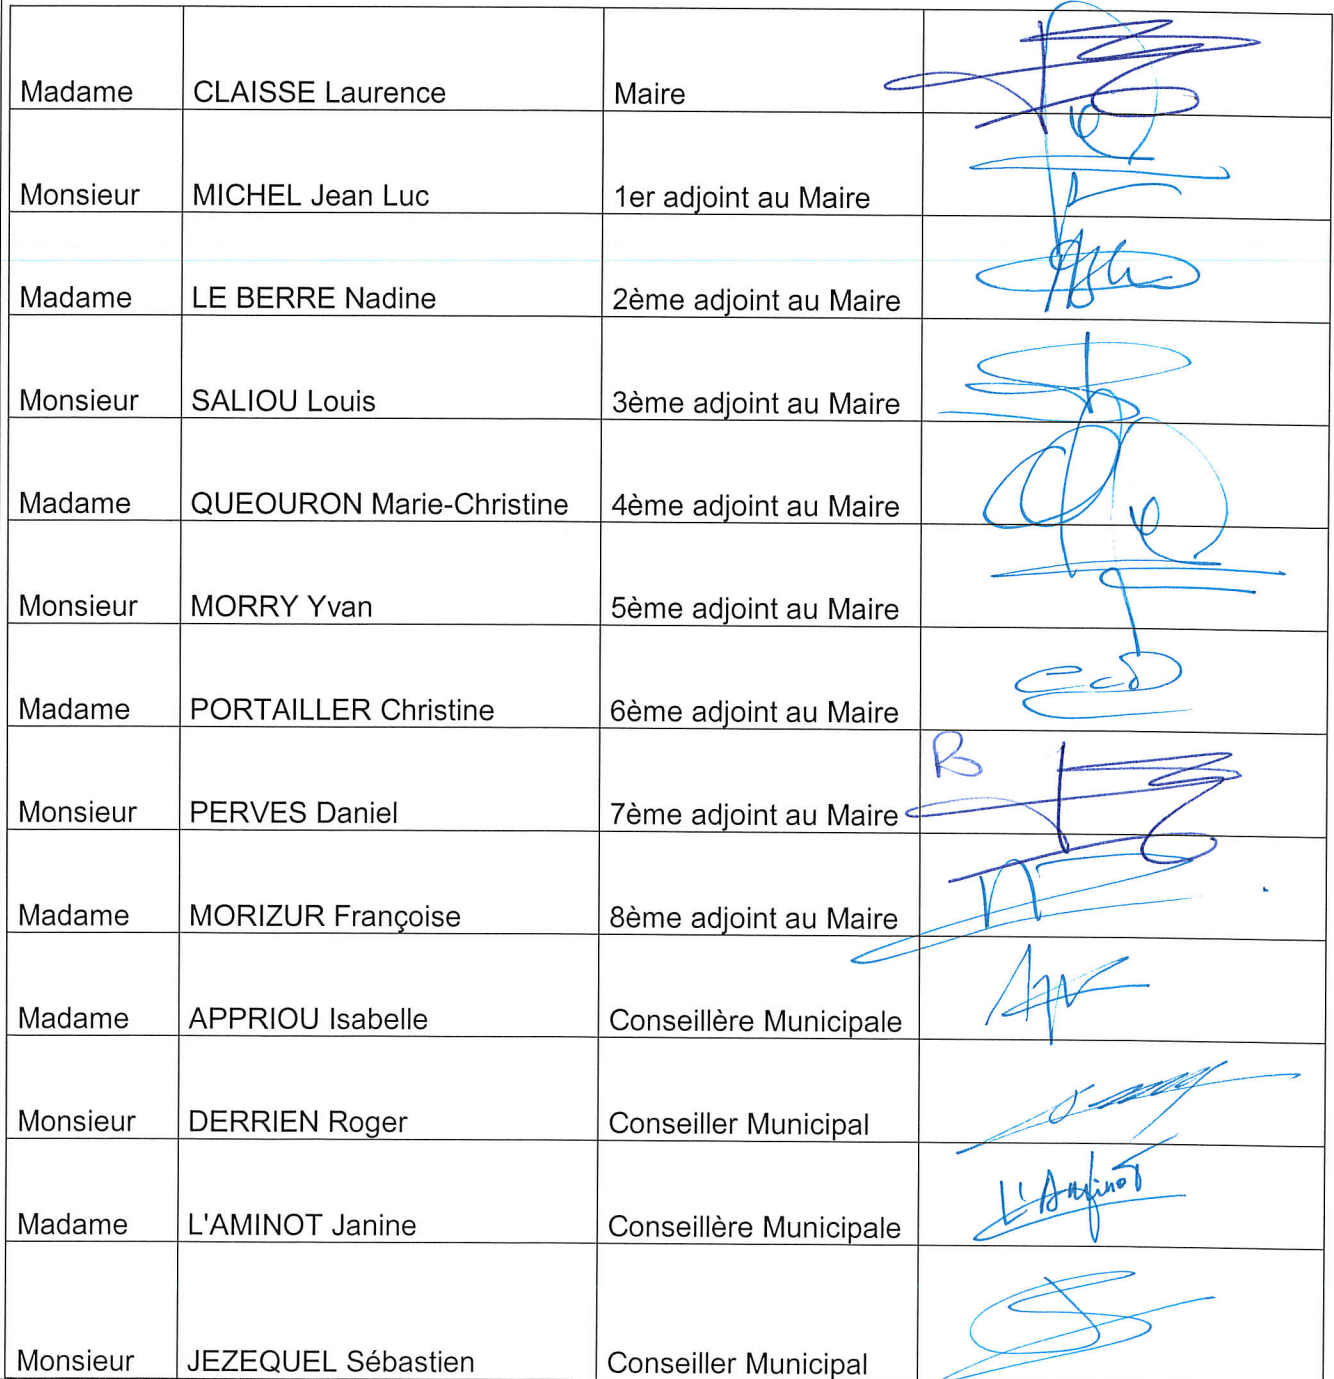 Madame CLAISSE Laurence Maire
Monsieur MICHEL Jean Luc 1er adjoint au Maire
Madame LE BERRE Nadine 2ème adjoint au Maire
Monsieur SALIOU Louis 3ème adjoint au Maire
Madame QUEOURON Marie-Christine 4ème adjoint au Maire
Monsieur MORRY Yvan 5ème adjoint au Maire
Madame PORTAILLER Christine 6ème adjoint au Maire
Monsieur PERVES Daniel 7ème adjoint au Maire
Madame MORIZUR Françoise 8ème adjoint au Maire
Madame APPRIOU Isabelle Conseillère Municipale
Monsieur DERRIEN Roger Conseiller Municipal
Madame L'AMINOT Janine Conseillère Municipale L'Aminot
Monsieur JEZEQUEL Sébastien Conseiller Municipal